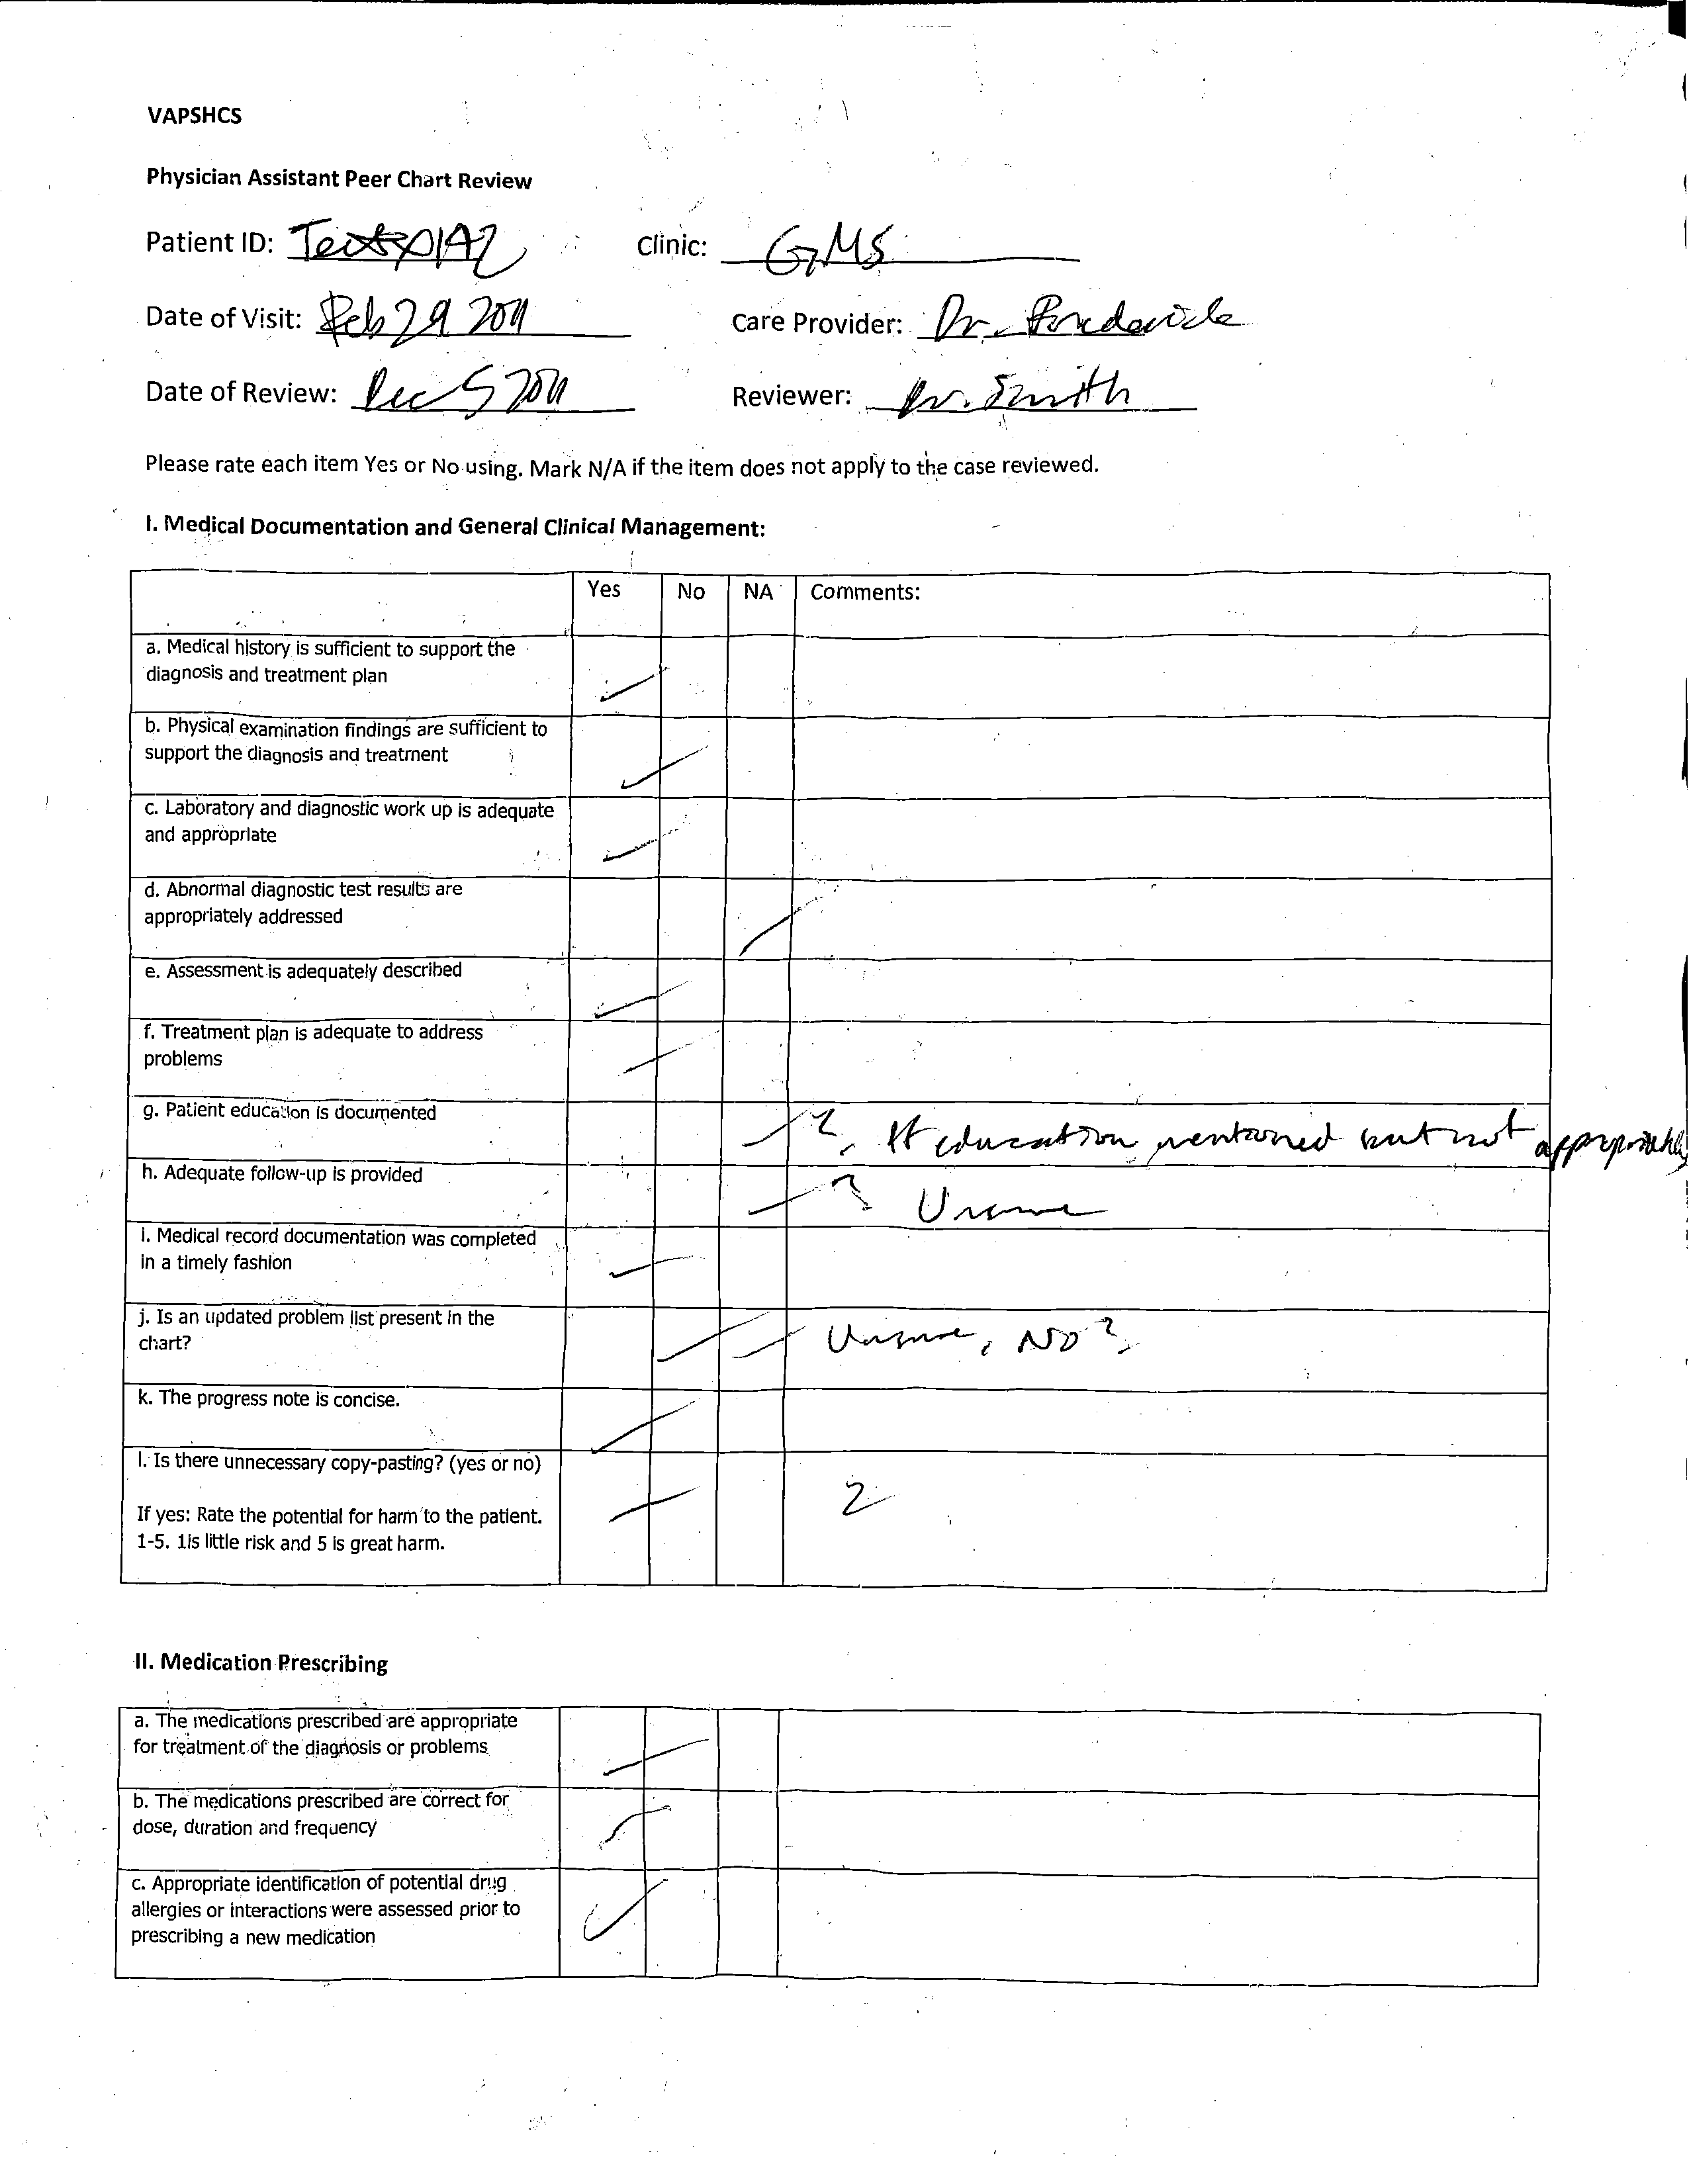 VAPSHCS
Physician Assistant Peer Chart Review
Patient ID: Clinic: GMS
Date of Visit: Feb 29 2011 Care Provider: Dr.
Date of Review: Dec 5 2011 Reviewer: Dr. Smith
Please rate each item Yes or No using. Mark N/A if the item does not apply to the case reviewed.
I. Medical Documentation and General Clinical Management:
Yes No NA Comments:
a. Medical history is sufficient to support the
diagnosis and treatment plan
b. Physical examination findings are sufficient to
support the diagnosis and treatment
c. Laboratory and diagnostic work up is adequate
and appropriate
d. Abnormal diagnostic test results are
appropriately addressed
e. Assessment is adequately described
f. Treatment plan is adequate to address
problems
g. Patient education is documented ? Pt education mentioned but not appropriately
h. Adequate follow-up is provided ? Unsure
i. Medical record documentation was completed
in a timely fashion
j. Is an updated problem list present in the
chart? Unsure, No?
k. The progress note is concise.
l. Is there unnecessary copy-pasting? (yes or no)
If yes: Rate the potential for harm to the patient. 2
1-5. 1is little risk and 5 is great harm.
II. Medication Prescribing
a. The medications prescribed are appropriate
for treatment of the diagnosis or problems
b. The medications prescribed are correct for
dose, duration and frequency
c. Appropriate identification of potential drug
allergies or interactions were assessed prior to
prescribing a new medication